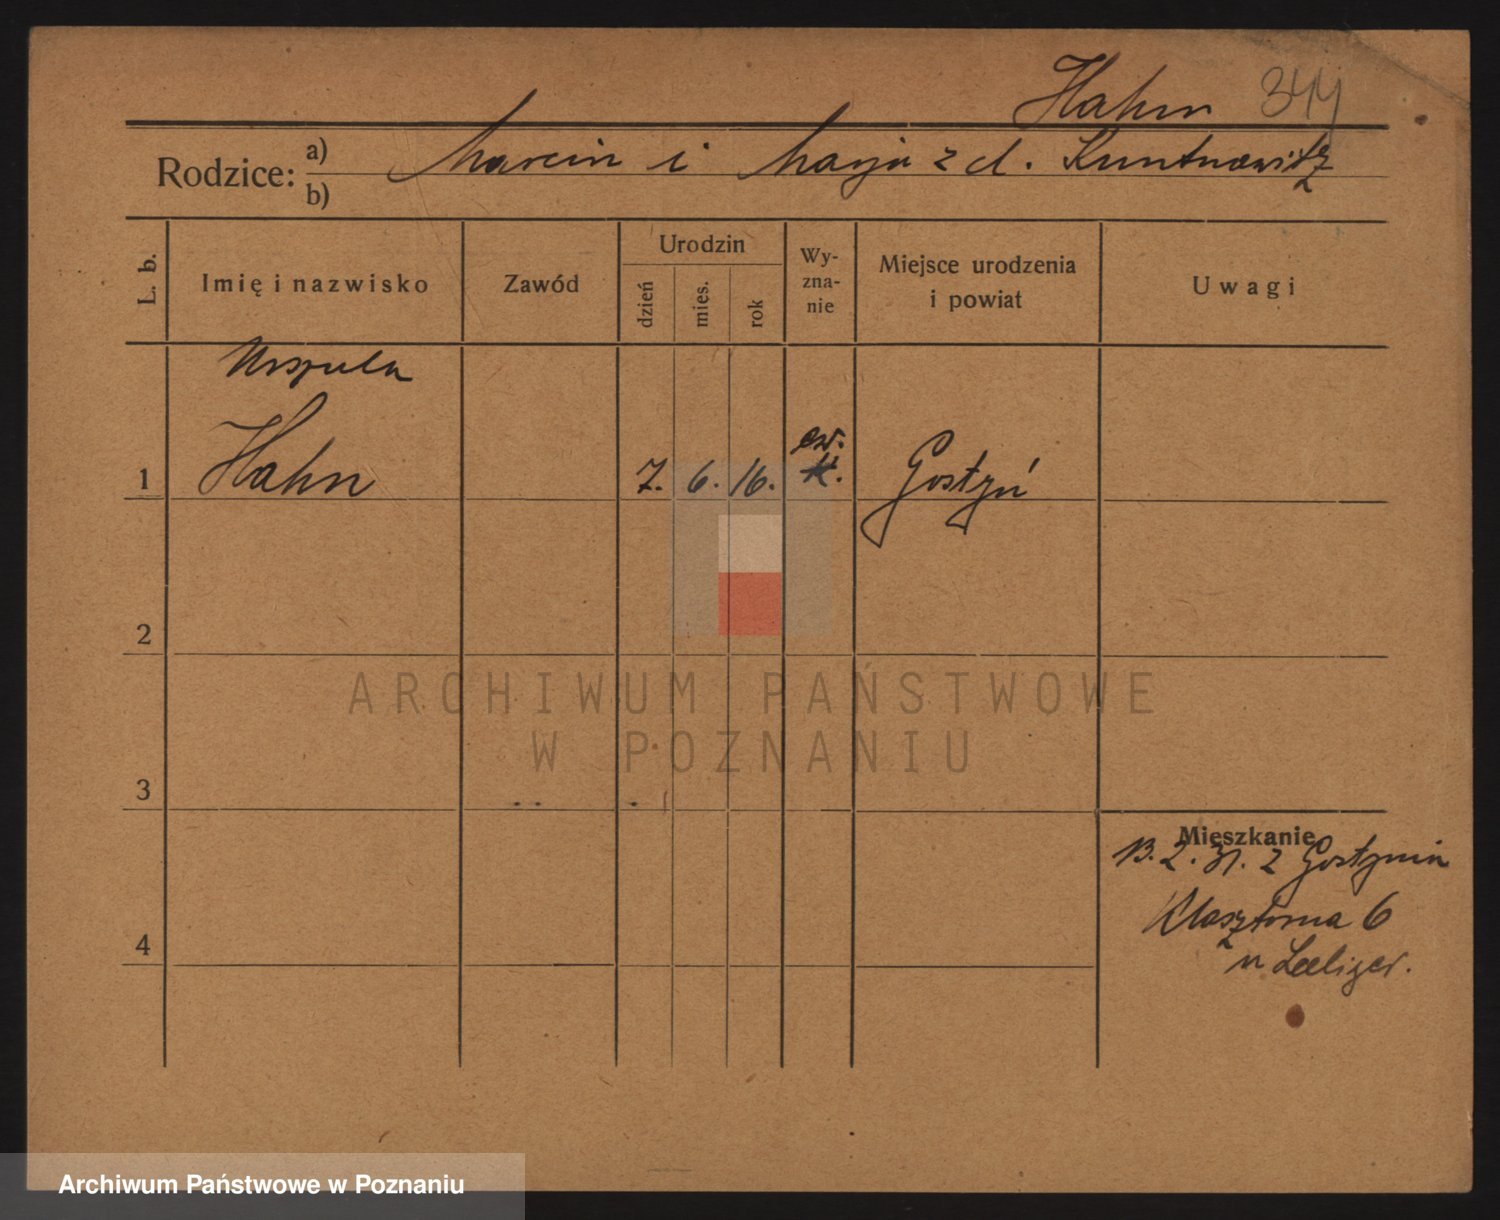 Hahn 344
Rodzice: a) Marcin i Marja z d.
b)
L. b.
Imię i nazwisko
Zawód
Urodzin
dzień
mies.
rok
Wy-
zna-
nie
Miejsce urodzenia
i powiat
Uwagi
Urszula
1 Hahn 7. 6. 16. ew. Gostyń
2
3
4
Mieszkanie
13. 2. 31. z Gostynia
Klasztorna 6
u
ARCHIWUM PAŃSTWOWE
W POZNANIU
Archiwum Państwowe w Poznaniu